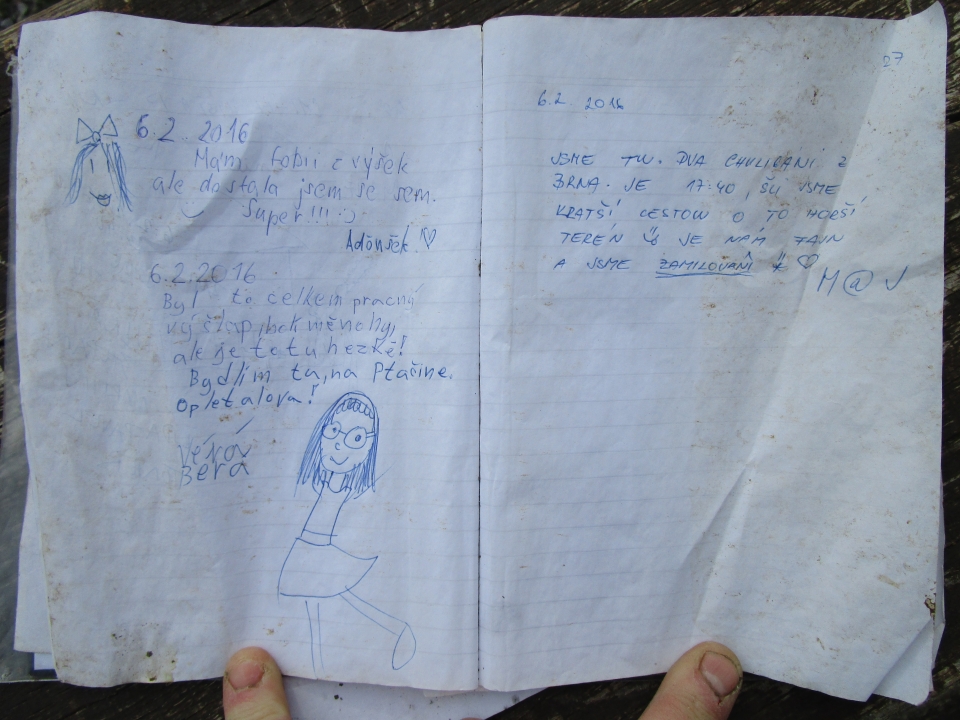 6.2. 2016
Mám fobii z výšek
ale dostala jsem se sem.
Super!!! :)
6.2.2016
Byl to celkem pracný
ale je to tu hezké!
Bydlím ta, na Ptačine.
Opletalova!
Běra
27
6.2. 2016
JSME TU. DVA CHULIGÁNI Z
BRNA. JE 17:40, ŠLI JSME
KRATŠÍ CESTOU O TO HORŠÍ
TERÉN JE NÁM FAJN
A JSME ZAMILOVANÍ ♡
M@J